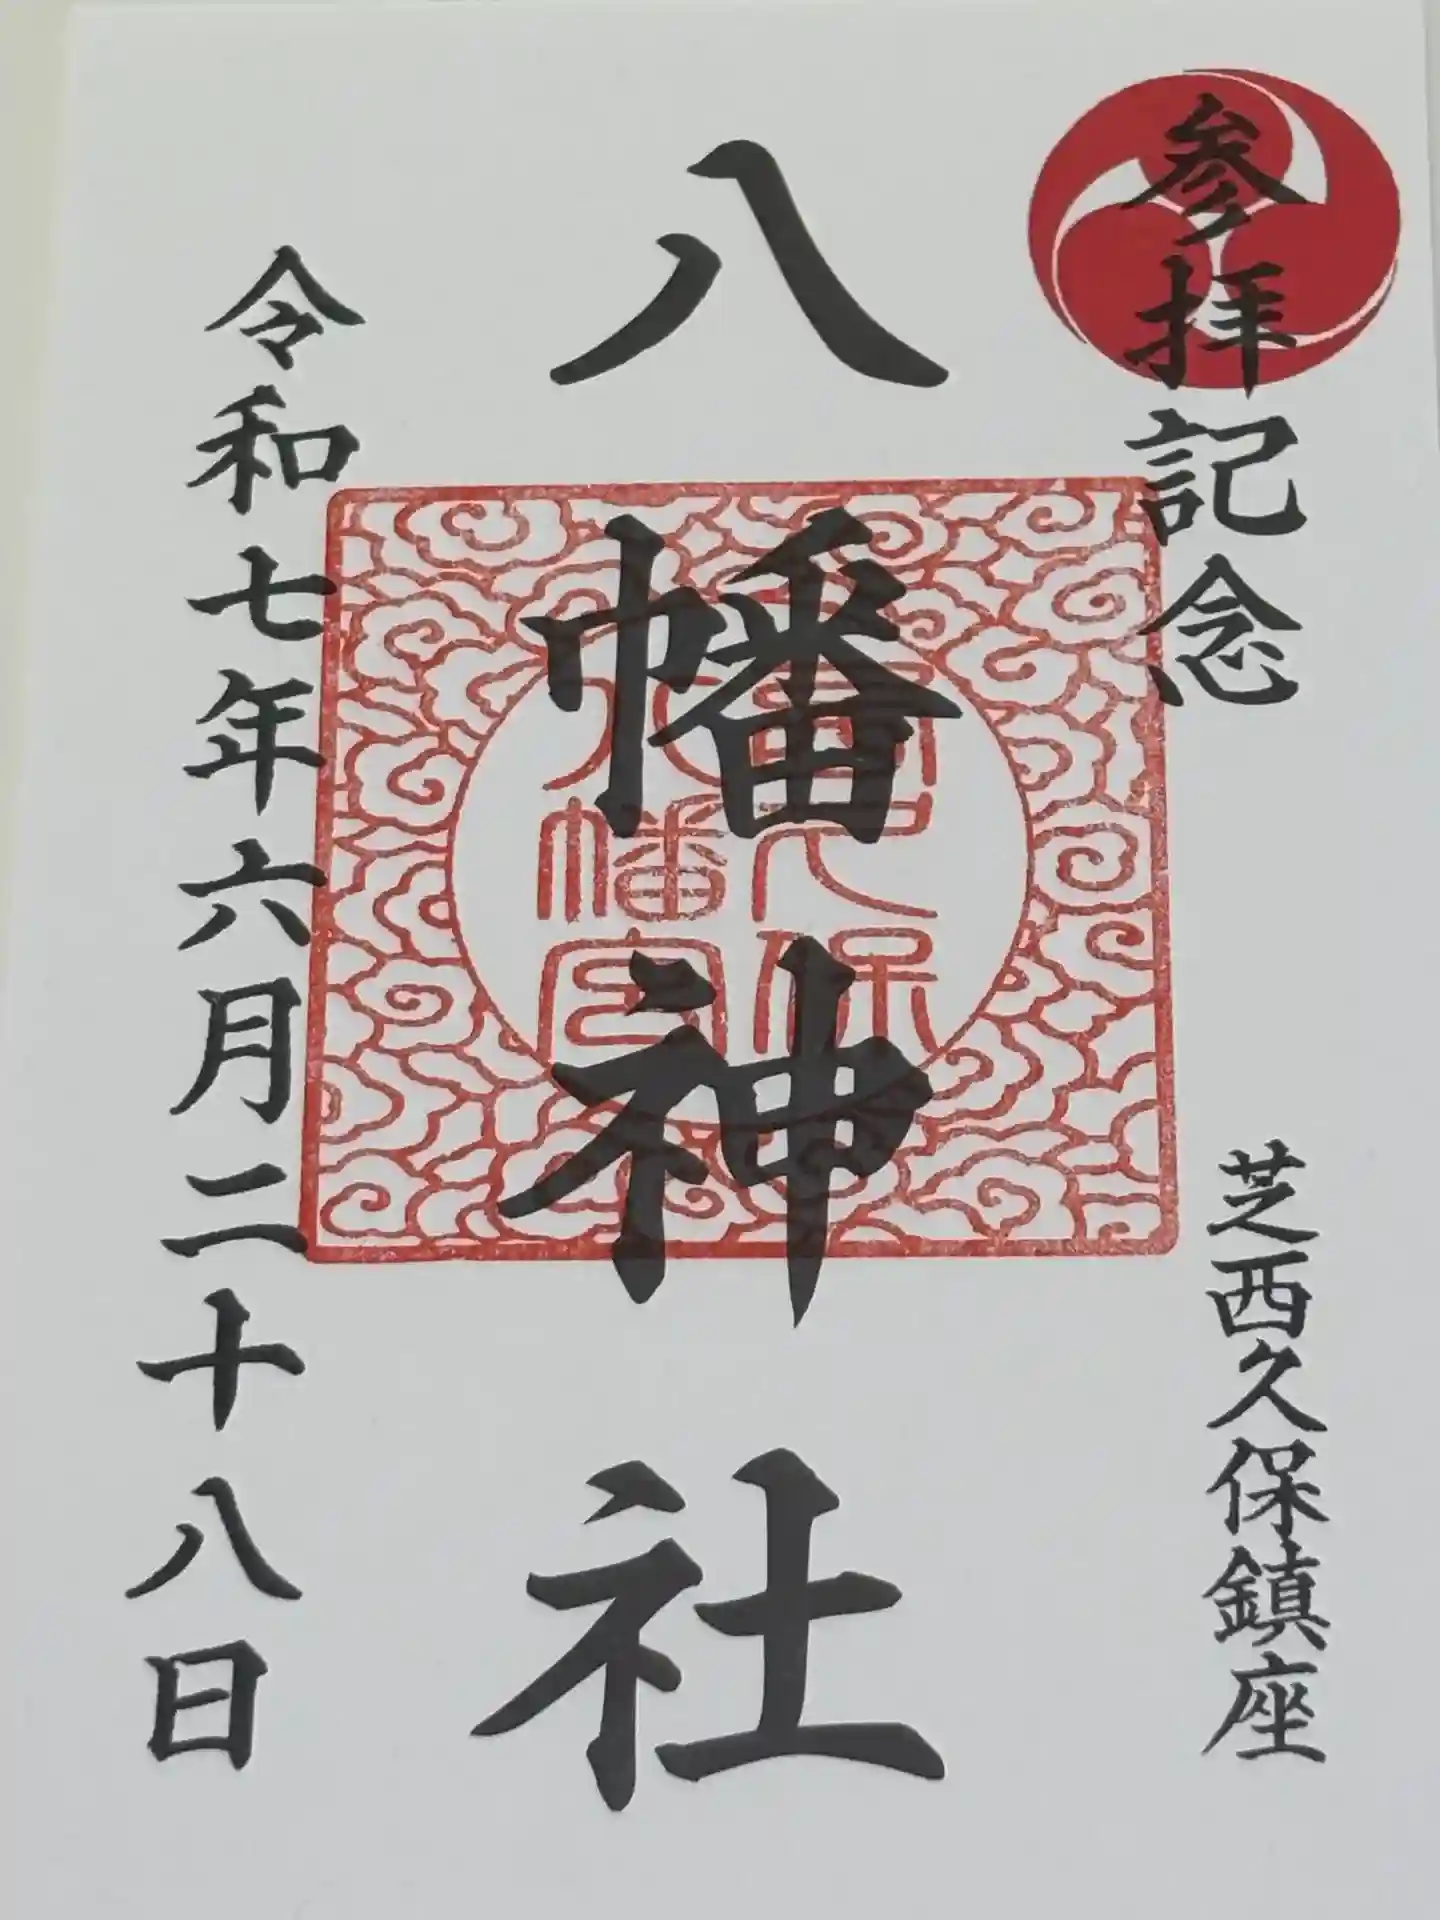 参拝記念
芝西久保鎮座
八幡神社
西久保
八幡宮
令和七年六月二十八日